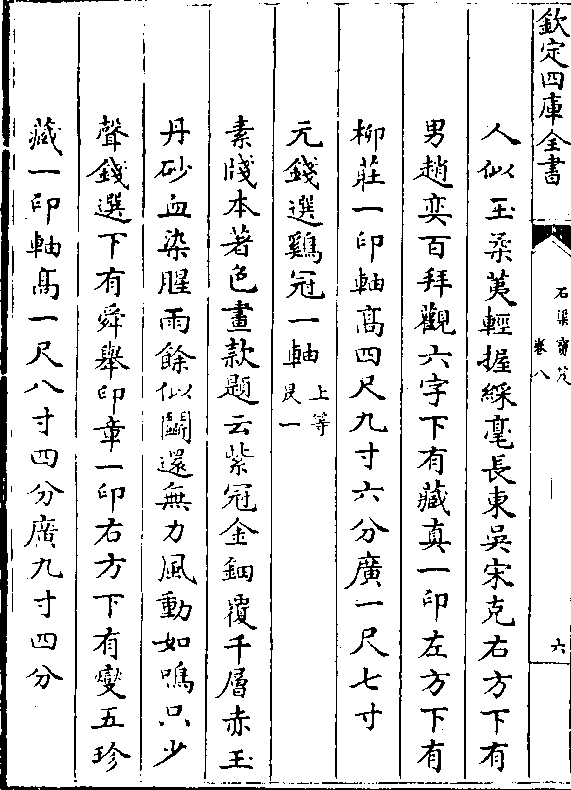 欽定四庫全書
石渠寳笈
卷八
六
人似玉柔荑輕握綵毫長東吳宋克右方下有
男趙奕百拜觀六字下有藏真一印左方下有
柳莊一印軸髙四尺九寸六分廣一尺七寸
元錢選鷄冠一軸上等
昃一
素牋本著色畫款題云紫冠金鈿覆千層赤玉
丹砂血染腥雨餘似鬬還無力風動如鳴只少
聲錢選下有舜舉印章一印右方下有夔五珍
藏一印軸髙一尺八寸四分廣九寸四分